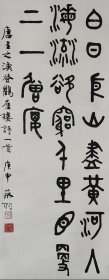 白日依山盡黃河入
海流欲窮千里目更
上一層樓
唐王之渙登鸛雀樓詩一首 庚申